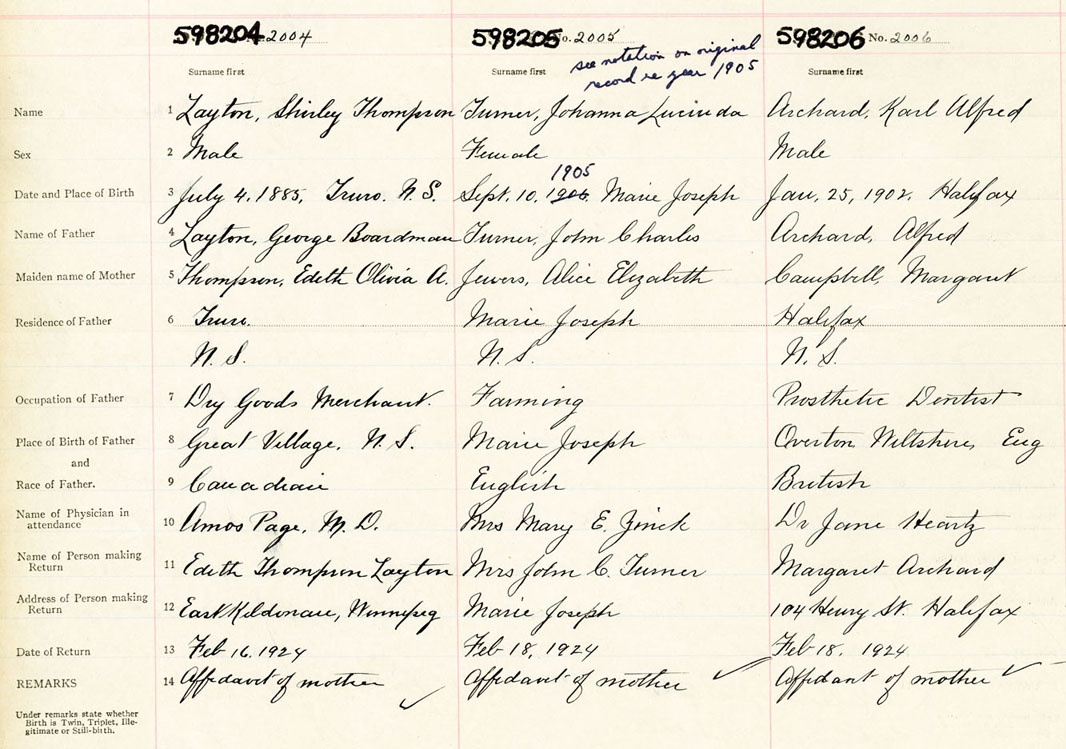 598204 No. 2004 598205 No. 2005 598206 No. 2006
see notation on original
record re year 1905
Surname first Surname first Surname first
Name 1 Layton, Shirley Thompson Turner, Johanna Lucinda Archard, Karl Alfred
Sex 2 Male Female Male
1905
Date and Place of Birth 3 July 4, 1885, Truro. N.S. Sept. 10, 1906 Marie Joseph Jan, 25, 1902. Halifax
Name of Father 4 Layton, George Boardman Turner, John Charles Archard, Alfred
Maiden name of Mother 5 Thompson, Edith Olivia A. Jewers, Alice Elizabeth Campbell, Margaret
Residence of Father 6 Truro. Marie Joseph Halifax
N.S. N.S. N.S.
Occupation of Father 7 Dry Goods Merchant. Farming Prosthetic Dentist
Place of Birth of Father 8 Great Village, N.S. Marie Joseph Overton Wiltshire, Eng
and
Race of Father. 9 Canadian English British
Name of Physician in
attendance 10 Amos Page, M.D. Mrs Mary E. Zinck Dr Jane Heartz
Name of Person making
Return 11 Edith Thompson Layton Mrs John C. Turner Margaret Archard
Address of Person making
Return 12 East Kildonan, Winnipeg Marie Joseph 104 Henry St. Halifax
Date of Return 13 Feb 16, 1924 Feb 18, 1924 Feb 18, 1924
REMARKS 14 Affidavit of mother Affidavit of mother Affidavit of mother
Under remarks state whether
Birth is Twin, Triplet, Ille-
gitimate or Still-birth.